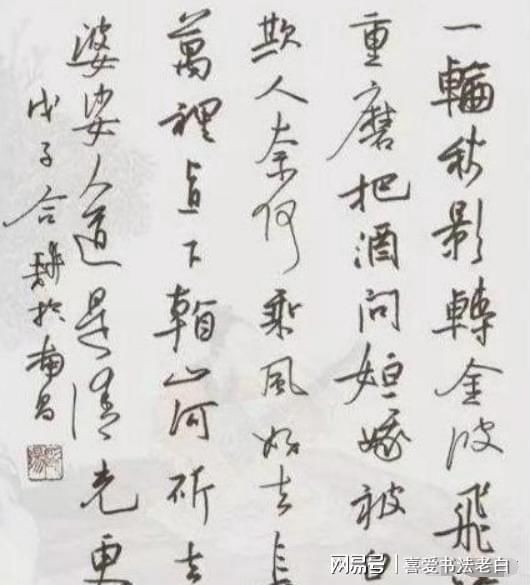 一輪秋影轉金波飛
重磨把酒問姮娥被
欺人奈何乘風好去長
萬裡直下看山河斫去
婆娑人道是清光更
戊子合於南昌
网易号 | 喜爱书法老白